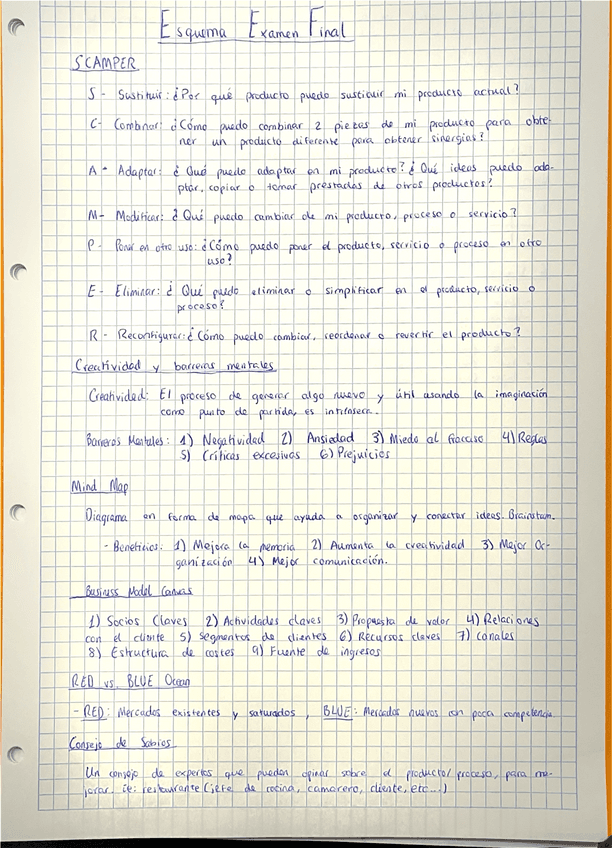 Esquema Examen Final
SCAMPER
S - Sustituir: ¿Por qué producto puedo sustituir mi producto actual?
C - Combinar: ¿Cómo puedo combinar 2 piezas de mi producto para obte-
ner un producto diferente para obtener sinergias?
A - Adaptar: ¿Qué puedo adaptar en mi producto? ¿Qué ideas puedo ada-
ptar, copiar o tomar prestadas de otros productos?
M - Modificar: ¿Qué puedo cambiar de mi producto, proceso o servicio?
P - Poner en otro uso: ¿Cómo puedo poner el producto, servicio o proceso en otro
uso?
E - Eliminar: ¿Qué puedo eliminar o simplificar en el producto, servicio o
proceso?
R - Reconfigurar: ¿Cómo puedo cambiar, reordenar o revertir el producto?
Creatividad y barreras mentales
Creatividad: El proceso de generar algo nuevo y útil usando la imaginación
como punto de partida, es intrínseca.
Barreras Mentales: 1) Negatividad 2) Ansiedad 3) Miedo al fracaso 4) Reglas
5) Críticas excesivas 6) Prejuicios
Mind Map
Diagrama en forma de mapa que ayuda a organizar y conectar ideas. Brainstorm.
- Beneficios: 1) Mejora la memoria 2) Aumenta la creatividad 3) Mejor Or-
ganización 4) Mejor comunicación.
Business Model Canvas
1) Socios Claves 2) Actividades claves 3) Propuesta de valor 4) Relaciones
con el cliente 5) Segmentos de clientes 6) Recursos claves 7) Canales
8) Estructura de costes 9) Fuente de ingresos
RED vs. BLUE Ocean
- RED: Mercados existentes y saturados, BLUE: Mercados nuevos con poca competencia
Consejo de Sabios
Un consejo de expertos que puedan opinar sobre el producto/proceso, para me-
jorar. ie: restaurante (jefe de cocina, camarero, cliente, etc...)